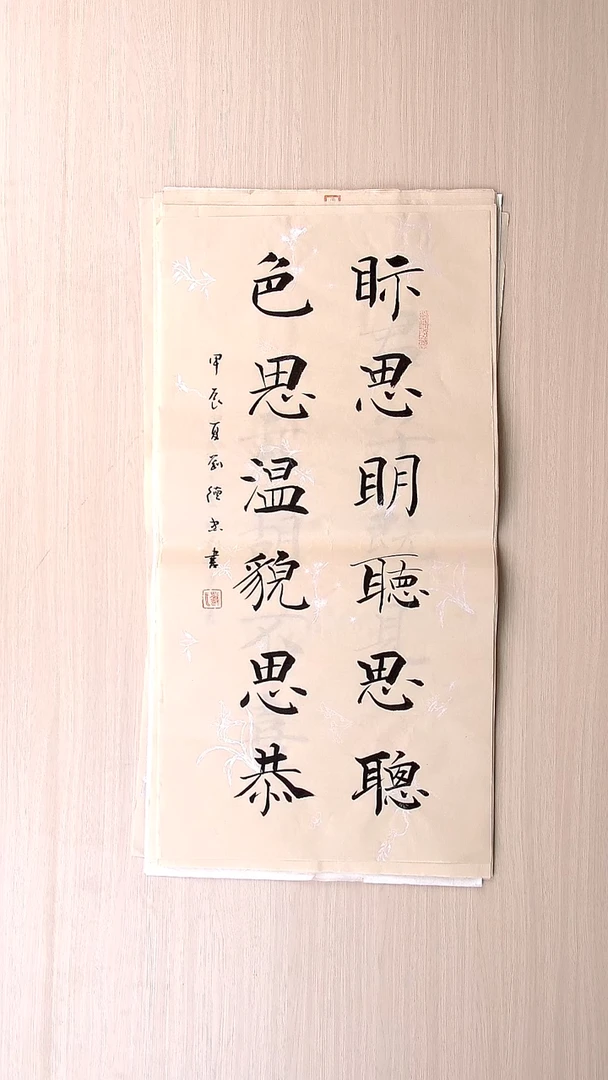 眎思明聴思聰
色思温貌思恭
甲辰夏劉德書